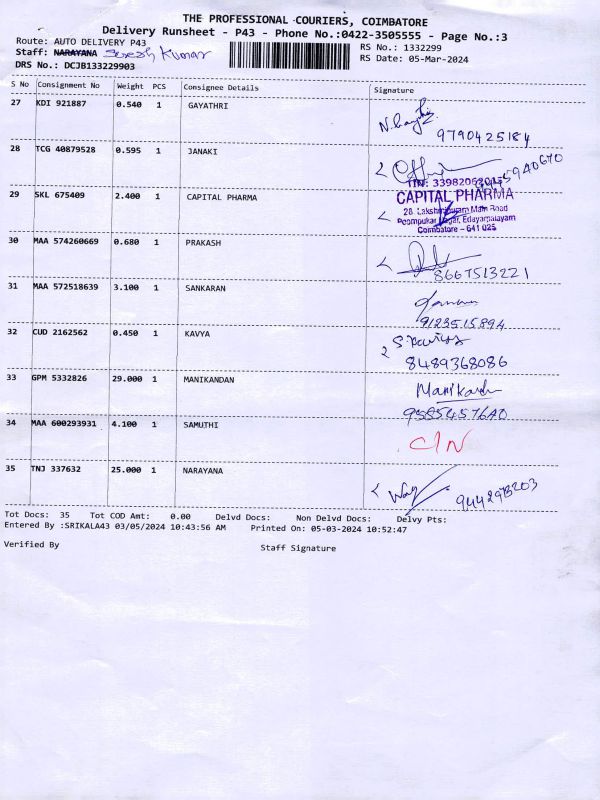 THE PROFESSIONAL COURIERS, COIMBATORE
Delivery Runsheet - P43 - Phone No.:0422-3505555 - Page No.:3
Route: AUTO DELIVERY P43
RS No.: 1332299
Staff: NARAYANA Suresh Kumar
RS Date: 05-Mar-2024
DRS No.: DCJB133229903
S No Consignment No Weight PCS Consignee Details Signature
27 KDI 921887 0.540 1 GAYATHRI
9790425184
28 TCG 40879528 0.595 1 JANAKI
TIN: 339820630
29 SKL 675409 2.400 1 CAPITAL PHARMA
CAPITAL PHARMA
28, Lakshmipuram Main Road
Poompukar Nagar, Edayarpalayam
Coimbatore - 641 025
30 MAA 574260669 0.680 1 PRAKASH
8667513221
31 MAA 572518639 3.100 1 SANKARAN
9123515894
32 CUD 2162562 0.450 1 KAVYA
8489368086
33 GPM 5332826 29.000 1 MANIKANDAN
Manikandn
34 MAA 600293931 4.100 1 SAMUTHI
C/N
35 TNJ 337632 25.000 1 NARAYANA
Tot Docs: 35 Tot COD Amt: 0.00 Delvd Docs: Non Delvd Docs: Delvy Pts:
Entered By :SRIKALA43 03/05/2024 10:43:56 AM Printed On: 05-03-2024 10:52:47
Verified By Staff Signature